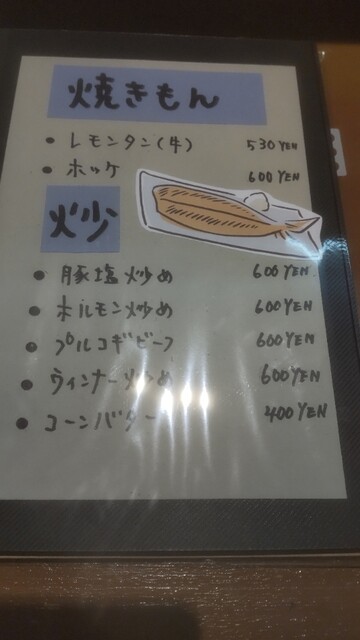 焼きもん
• レモンタン(牛) 530 YEN
• ホッケ 600 YEN
炒
• 豚塩炒め 600 YEN
• ホルモン炒め 600 YEN
• プルコギビーフ 600 YEN
• ウィンナー炒め 600 YEN
• コーンバター 400 YEN